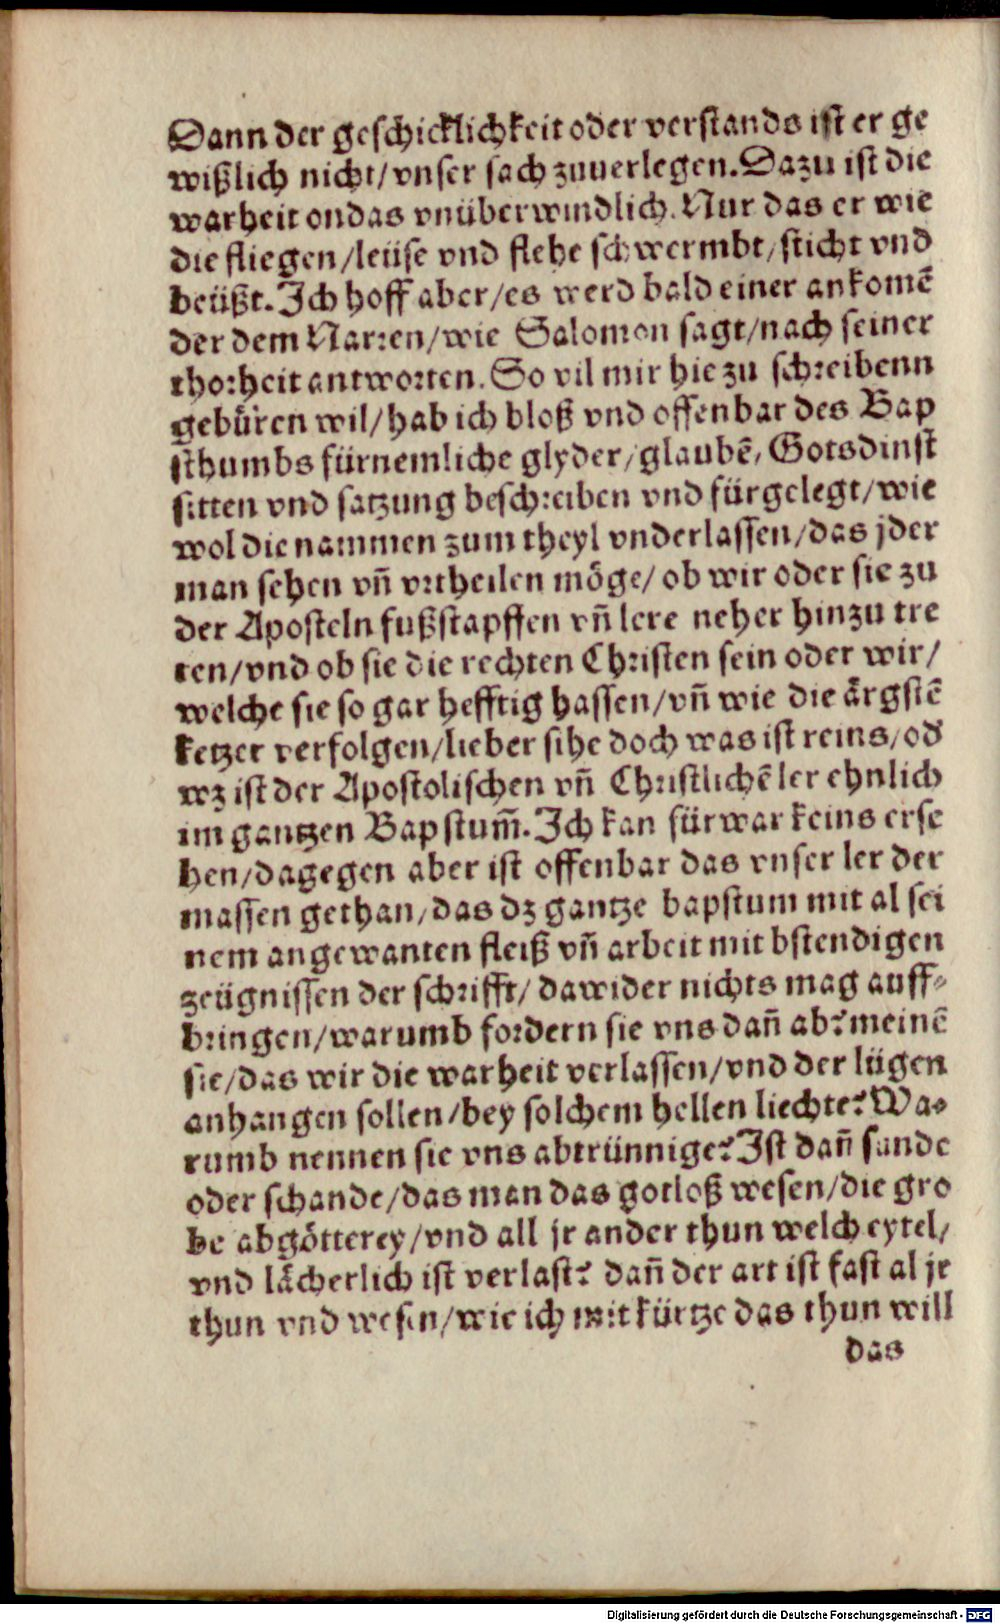 Dann der geschicklichkeit oder verstands ist er ge
wißlich nicht/ vnser sach zuuerlegen. Dazu ist die
warheit ondas vnüberwindlich. Nur das er wie
die fliegen/ leüse vnd flehe schwermbt/ sticht vnd
beüßt. Ich hoff aber/ es werd bald einer ankomē
der dem Narren/ wie Salomon sagt/ nach seiner
thorheit antworten. So vil mir hie zu schreibenn
gebüren wil/ hab ich bloß vnd offenbar des Bap
sthumbs fürnemliche glyder/ glaubē, Gotsdinst
sitten vnd satzung beschreiben vnd fürgelegt/ wie
wol die nammen zum theyl vnderlassen/ das jder
man sehen vñ vrtheilen möge/ ob wir oder sie zu
der Aposteln fußstapffen vñ lere neher hinzu tre
ten/ vnd ob sie die rechten Christen sein oder wir/
welche sie so gar hefftig hassen/ vñ wie die ärgstē
ketzer verfolgen/ lieber sihe doch was ist reins/ od
wz ist der Apostolischen vñ Christlichē ler ehnlich
im gantzen Bapstum̃. Ich kan fürwar keins erse
hen/ dagegen aber ist offenbar das vnser ler der
massen gethan/ das dz gantze bapstum mit al sei
nem angewanten fleiß vñ arbeit mit bstendigen
zeügnissen der schrifft/ dawider nichts mag auff⸗
bringen/ warumb fordern sie vns dañ ab? meinē
sie/ das wir die warheit verlassen/ vnd der lügen
anhangen sollen/ bey solchem hellen liechte? Wa⸗
rumb nennen sie vns abtrünnige? Ist dañ sunde
oder schande/ das man das gotloß wesen/ die gro
be abgötterey/ vnd all jr ander thun welch eytel/
vnd lächerlich ist verlast? dañ der art ist fast al jr
thun vnd wesen/ wie ich mit kürtze das thun will
das
Digitalisierung gefördert durch die Deutsche Forschungsgemeinschaft - DFG